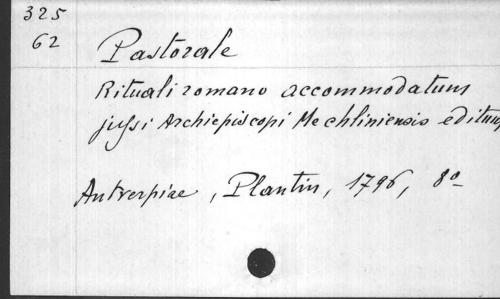 325
62
Pastorale
Rituali romano accommodatum
jussi Archiepiscopi Mechliniensis editum
Antverpiae, Plantin, 1796, 8º